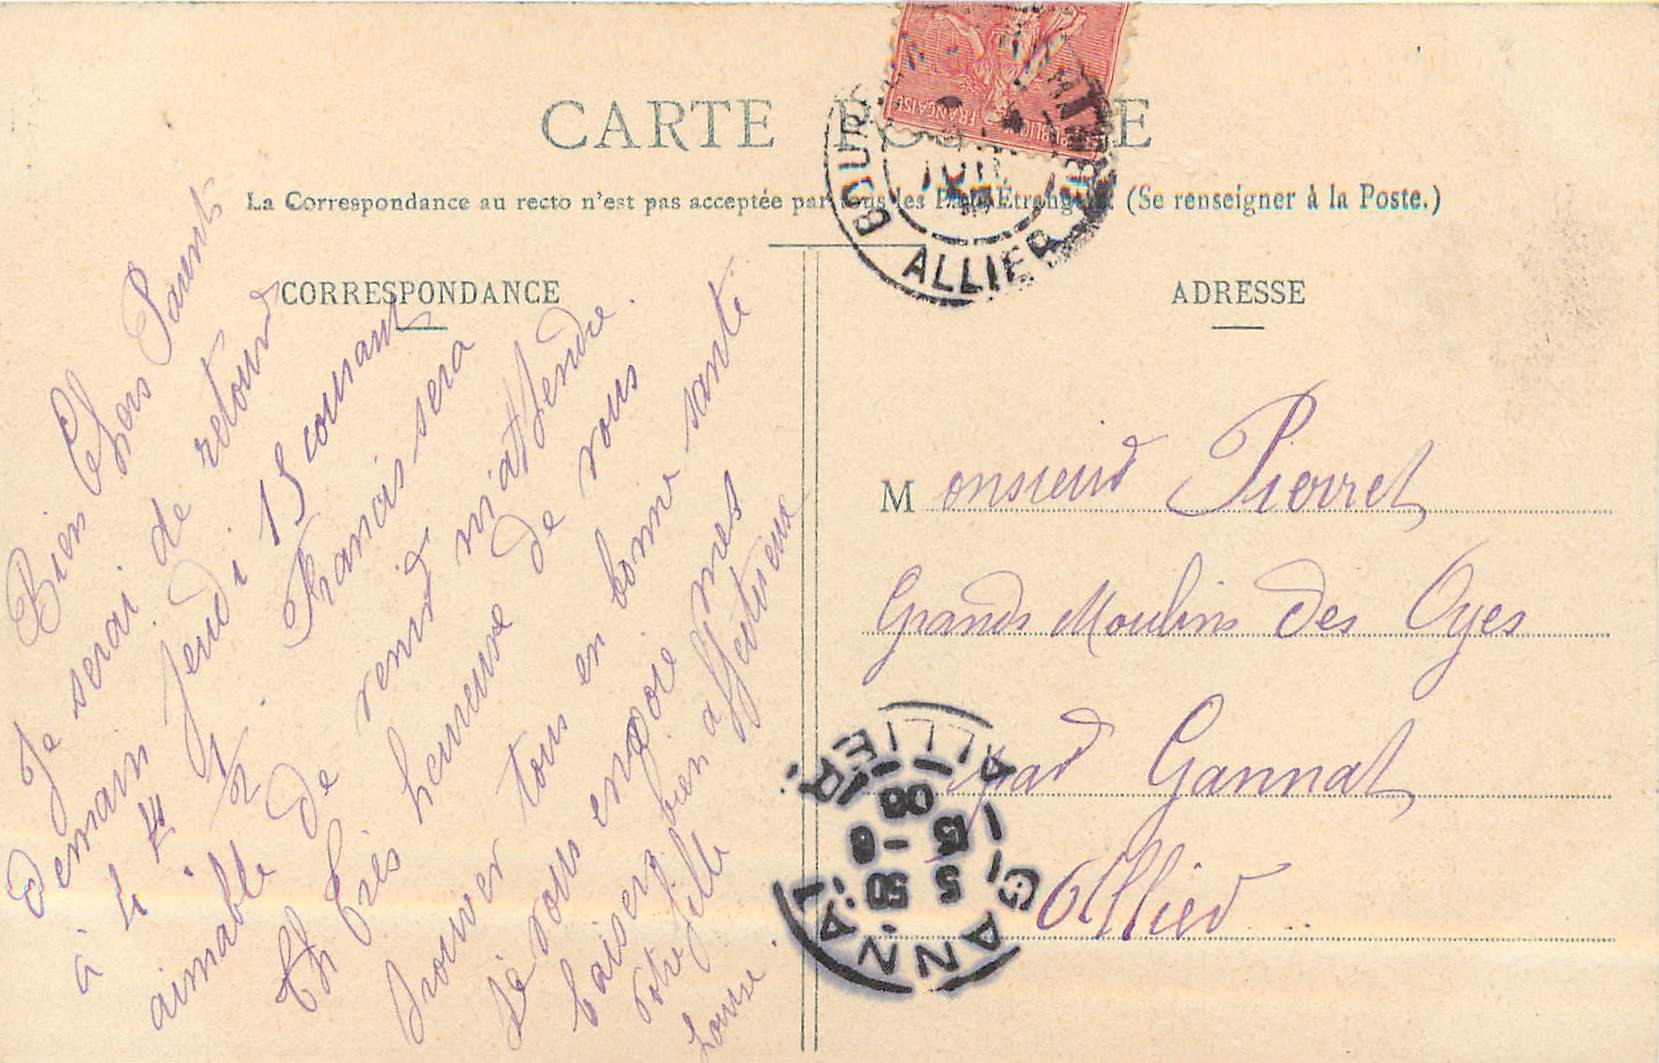 CARTE POSTALE
La Correspondance au recto n'est pas acceptée par tous les Pays Étrangers (Se renseigner à la Poste.)
CORRESPONDANCE
Bien Chers Parents
Je serai de retour
demain jeudi 15 courant
à 4 H 1/2. Francois sera
aimable de venir m'attendre.
Th Très heureuse de vous
trouver tous en bonne santé
Je vous envoie mes
baisers bien affectueux
Votre fille
Louise.
ADRESSE
Monsieur Pierret
Grands Moulins des Oyes
par Gannat
Allier
RÉPUBLIQUE FRANÇAISE
ALLIER
GANNAT
ALLIER
5 50
13 -6
06